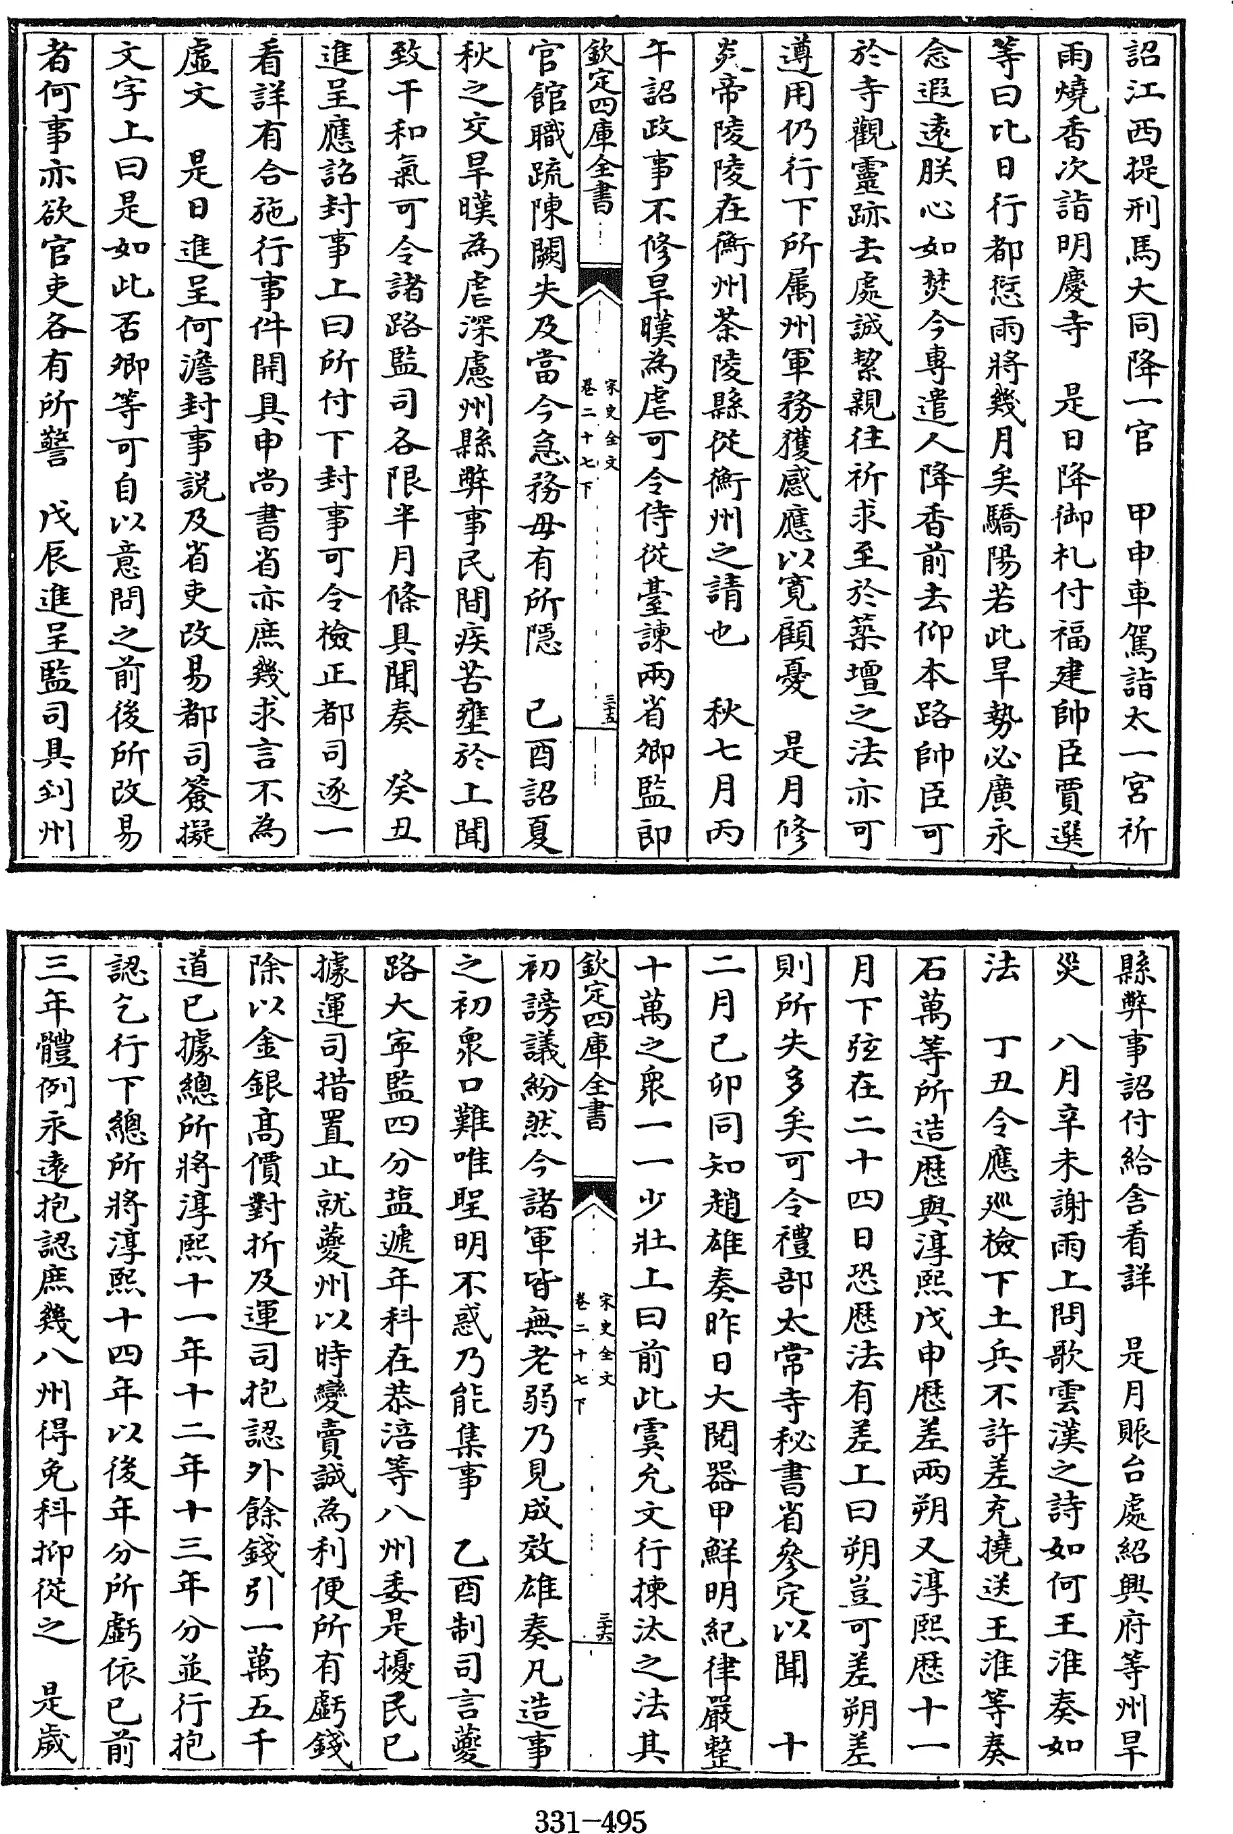 詔江西提刑馬大同降一官　甲申車駕詣太一宮祈
雨燒香次詣明慶寺　是日降御札付福建帥臣賈選
等曰比日行都愆雨將幾月矣驕陽若此旱勢必廣永
念遐遠朕心如焚今專遣人降香前去仰本路帥臣可
於寺觀靈跡去處誠潔親往祈求至於築壇之法亦可
遵用仍行下所属州軍務獲感應以寛顧憂　是月修
炎帝陵陵在衡州茶陵縣從衡州之請也　秋七月丙
午詔政事不修旱暵為虐可令侍從臺諫兩省卿監郎
欽定四庫全書
宋史全文
卷二十七下
三十五
官館職疏陳闕失及當今急務毋有所隱　己酉詔夏
秋之交旱暵為虐深慮州縣弊事民間疾苦壅於上聞
致干和氣可令諸路監司各限半月條具聞奏　癸丑
進呈應詔封事上曰所付下封事可令檢正都司逐一
看詳有合施行事件開具申尚書省亦庶幾求言不為
虛文　是日進呈何澹封事說及省吏改易都司簽擬
文字上曰是如此否卿等可自以意問之前後所改易
者何事亦欲官吏各有所警　戊辰進呈監司具到州
縣弊事詔付給舍看詳　是月賑台處紹興府等州旱
災　八月辛未謝雨上問歌雲漢之詩如何王淮奏如
法　丁丑令應巡檢下土兵不許差充撓送王淮等奏
石萬等所造歷與淳熙戊申歷差兩朔又淳熙歷十一
月下弦在二十四日恐歷法有差上曰朔豈可差朔差
則所失多矣可令禮部太常寺秘書省參定以聞　十
二月己卯同知趙雄奏昨日大閱器甲鮮明紀律嚴整
十萬之衆一一少壯上曰前此虞允文行揀汰之法其
欽定四庫全書
宋史全文
卷二十七下
三十六
初謗議紛然今諸軍皆無老弱乃見成效雄奏凡造事
之初衆口難唯聖明不惑乃能集事　乙酉制司言夔
路大寧監四分盐遞年科在恭涪等八州委是擾民已
據運司措置止就夔州以時變賣誠為利便所有虧錢
除以金銀高價對折及運司抱認外餘錢引一萬五千
道已據總所將淳熙十一年十二年十三年分並行抱
認乞行下總所將淳熙十四年以後年分所虧依已前
三年體例永遠抱認庶幾八州得免科抑從之　是歲
331-495